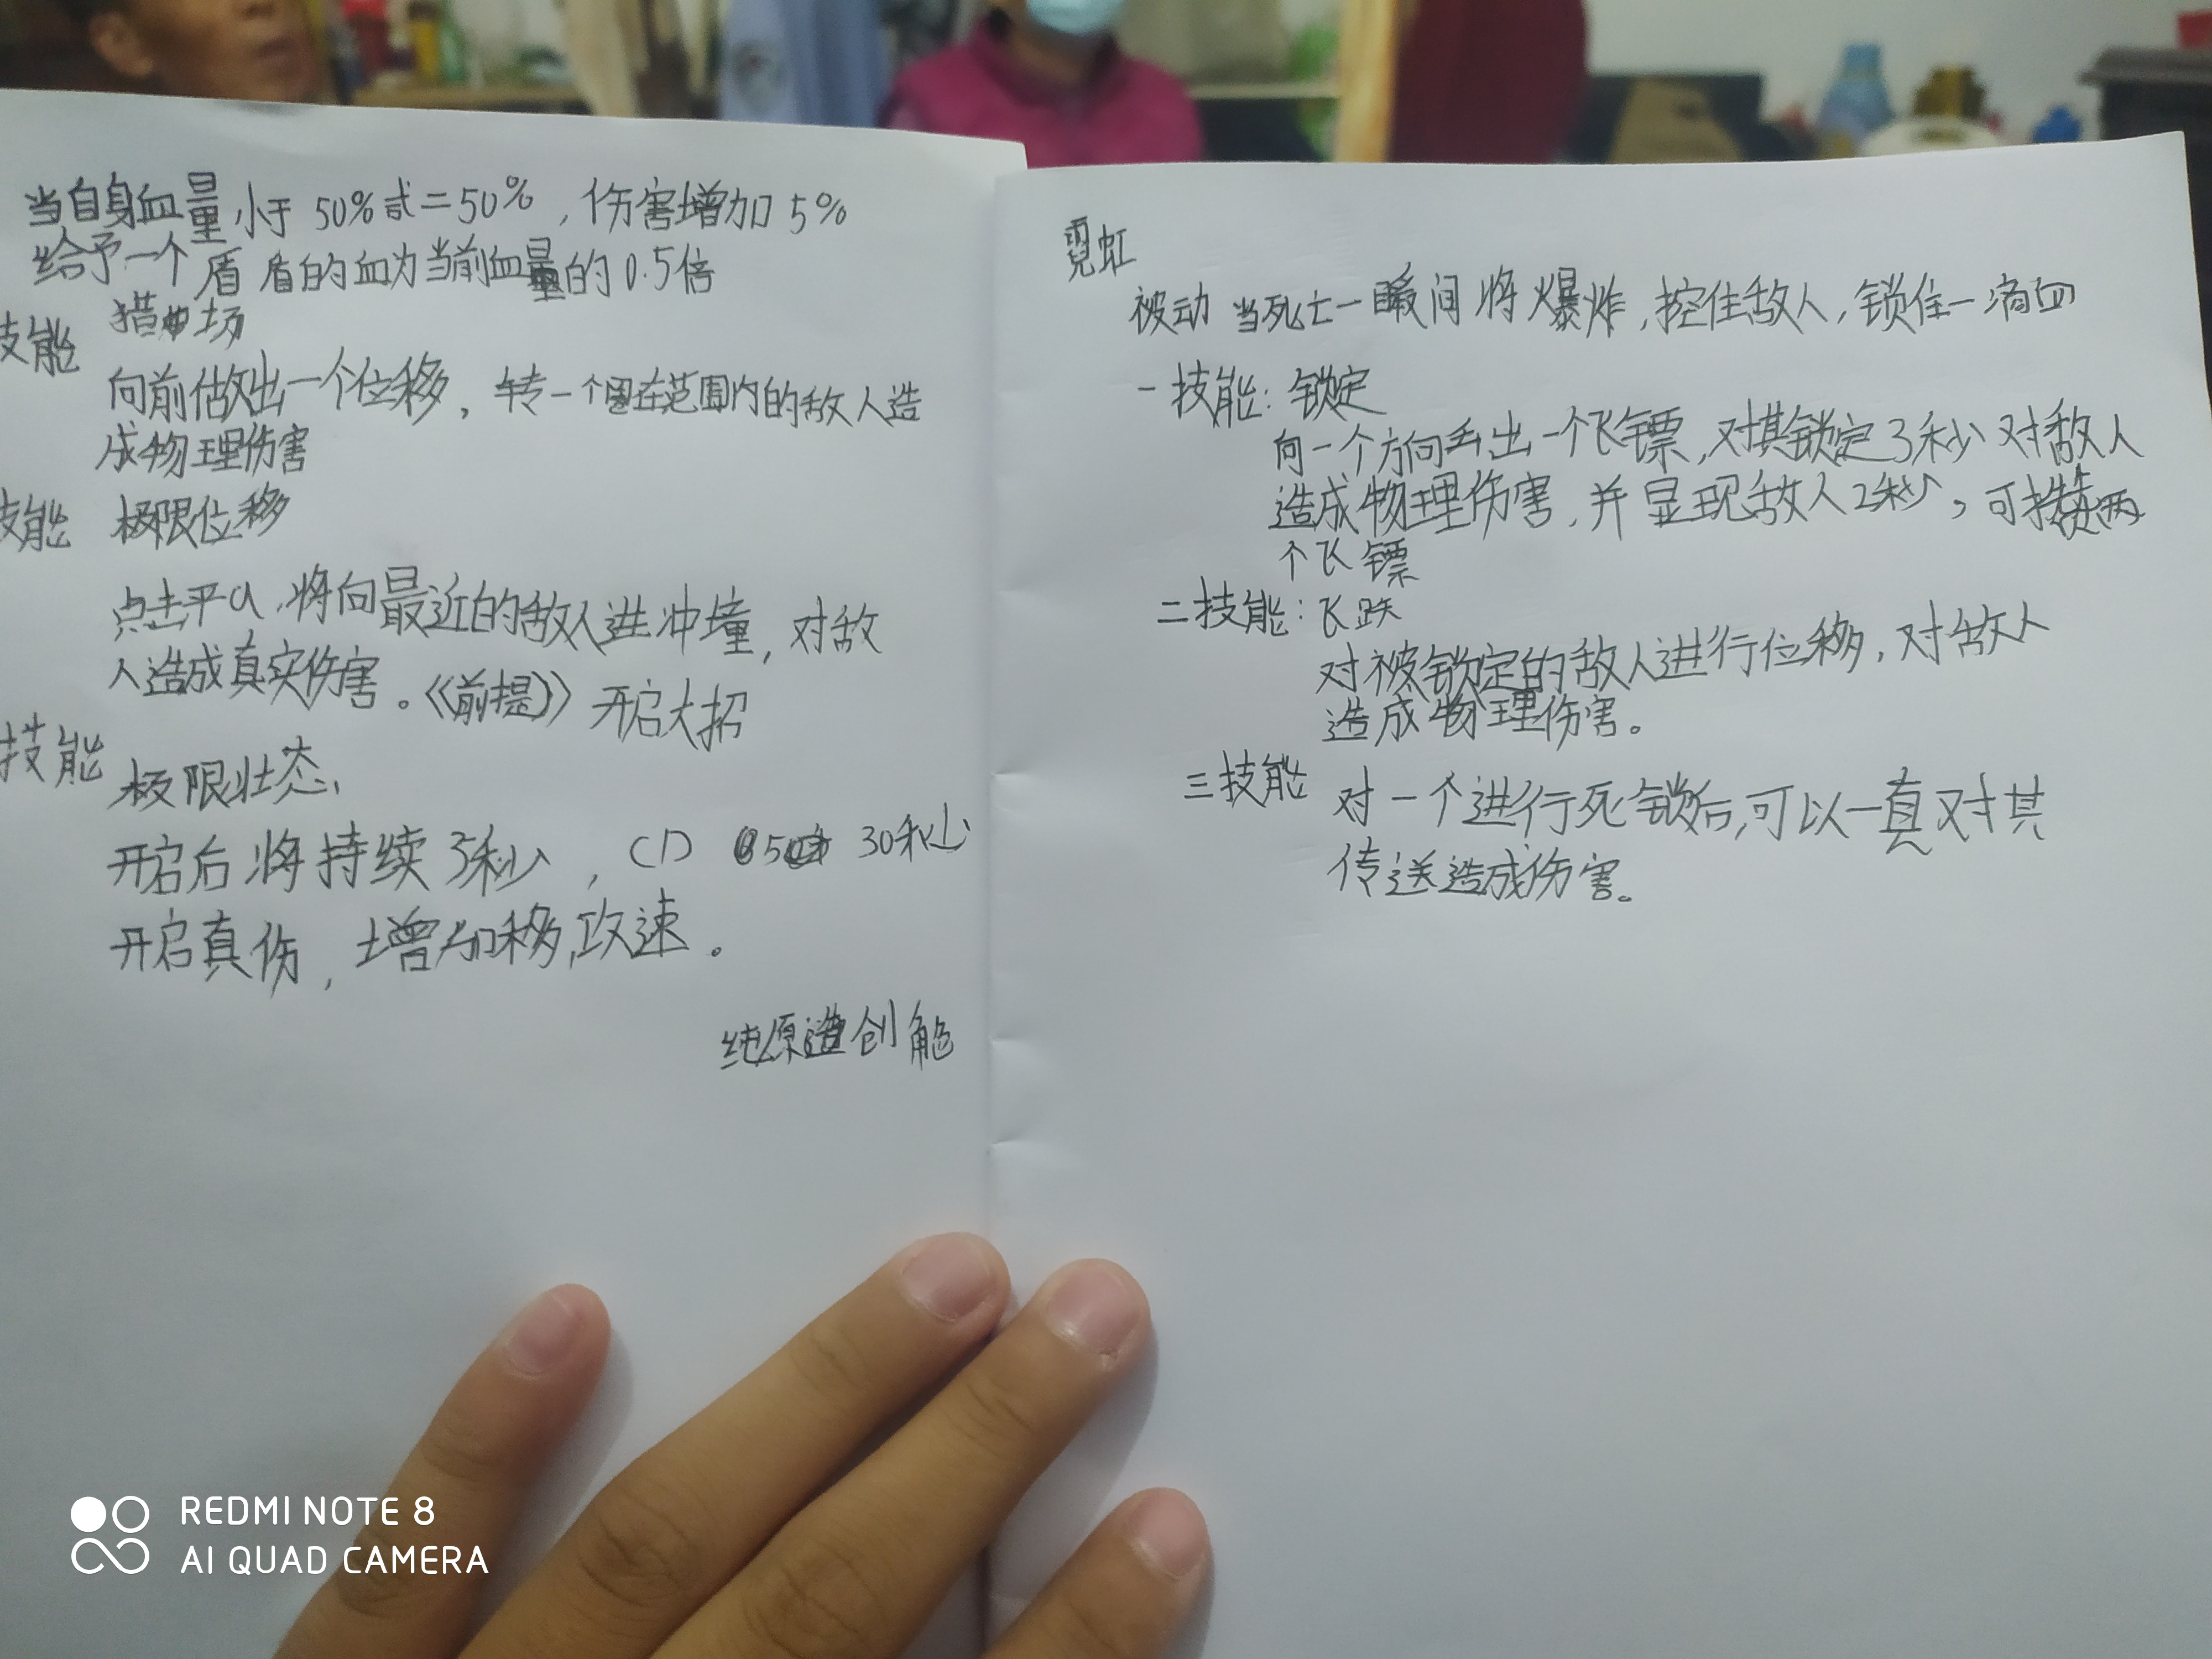 当自身血量小于50%或=50%,伤害增加5%
给予一个盾 盾的血为当前血量的0.5倍
技能 猎场
向前做出一个位移,转一个圈在范围内的敌人造
成物理伤害
技能 极限位移
点击平a,将向最近的敌人进冲撞,对敌
人造成真实伤害。《《前提》》开启大招
技能 极限状态,
开启后将持续3秒,CD 30秒
开启真伤,增加移,攻速。
纯原创角色
霓虹
被动 当死亡一瞬间将爆炸,控住敌人,锁住一滴血
一技能:锁定
向一个方向丢出一个飞镖,对其锁定3秒对敌人
造成物理伤害,并显现敌人2秒,可攒两
个飞镖
二技能:飞跃
对被锁定的敌人进行位移,对敌人
造成物理伤害。
三技能 对一个进行死锁后,可以一真对其
传送造成伤害。
REDMI NOTE 8
AI QUAD CAMERA